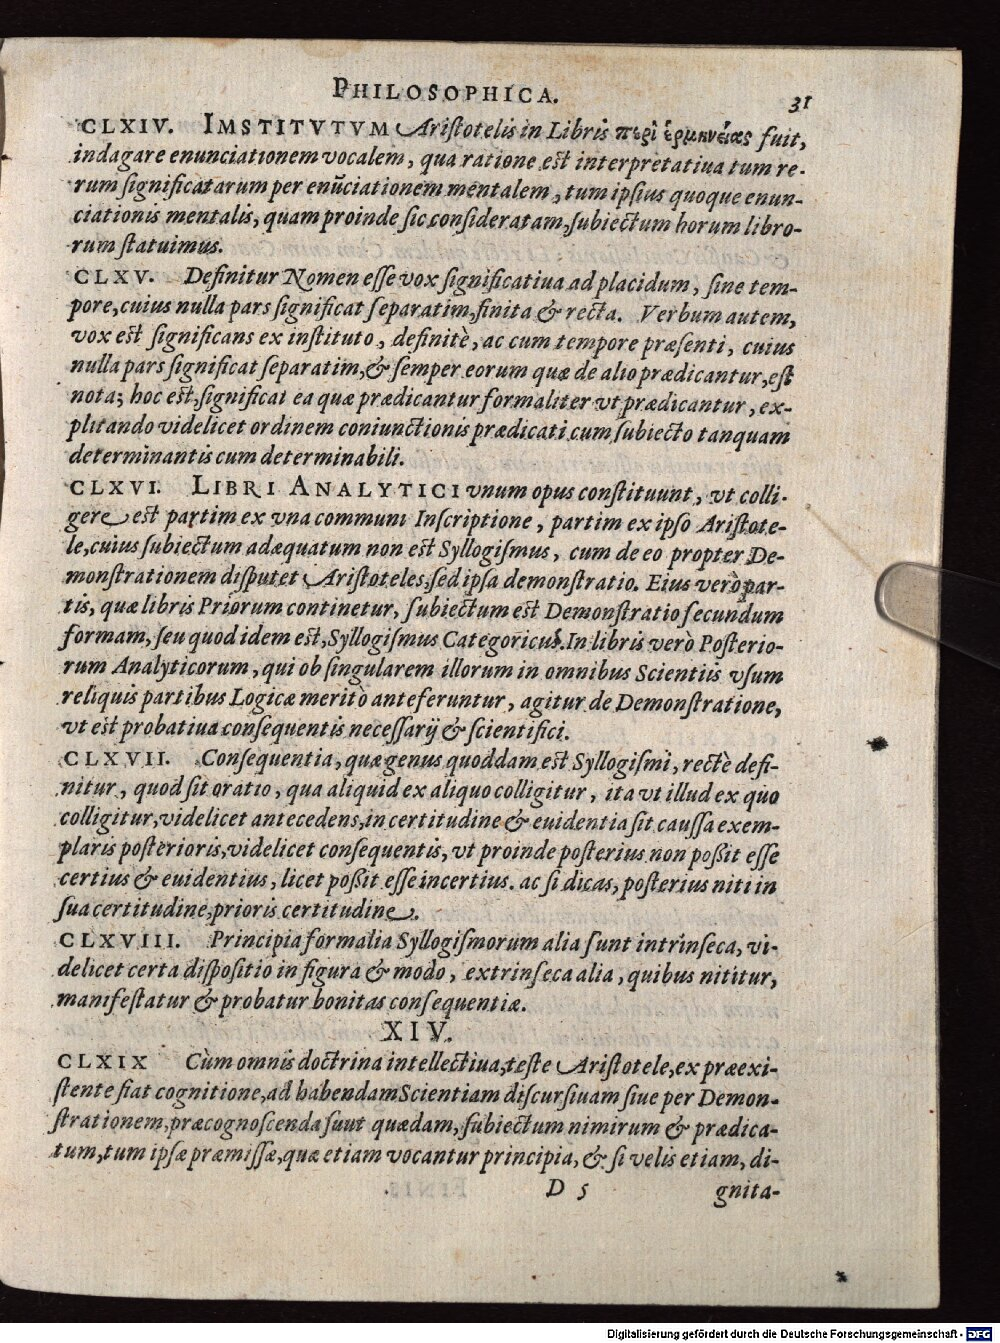 PHILOSOPHICA. 31
CLXIV. IMSTITVTVM Aristotelis in Libris περὶ ἑρμηνείας fuit,
indagare enunciationem vocalem, qua ratione est interpretatiua tum re-
rum significatarum per enūciationem mentalem, tum ipsius quoque enun-
ciationis mentalis, quam proinde sic consideratam, subiectum horum libro-
rum statuimus.
CLXV. Definitur Nomen esse vox significatiua ad placidum, sine tem-
pore, cuius nulla pars significat separatim, finita & recta. Verbum autem,
vox est significans ex instituto, definitè, ac cum tempore præsenti, cuius
nulla pars significat separatim, & semper eorum quæ de alio prædicantur, est
nota; hoc est, significat ea quæ prædicantur formaliter vt prædicantur, ex-
plitando videlicet ordinem coniunctionis prædicati cum subiecto tanquam
determinantis cum determinabili.
CLXVI. LIBRI ANALYTICI vnum opus constituunt, vt colli-
gere est partim ex vna communi Inscriptione, partim ex ipso Aristote-
le, cuius subiectum adæquatum non est Syllogismus, cum de eo propter De-
monstrationem disputet Aristoteles, sed ipsa demonstratio. Eius verò par-
tis, quæ libris Priorum continetur, subiectum est Demonstratio secundum
formam, seu quod idem est, Syllogismus Categoricus. In libris verò Posterio-
rum Analyticorum, qui ob singularem illorum in omnibus Scientiis vsum
reliquis partibus Logicæ meritò anteferuntur, agitur de Demonstratione,
vt est probatiua consequentis necessarij & scientifici.
CLXVII. Consequentia, quæ genus quoddam est Syllogismi, rectè defi-
nitur, quod sit oratio, qua aliquid ex aliquo colligitur, ita vt illud ex quo
colligitur, videlicet antecedens, in certitudine & euidentia sit caussa exem-
plaris posterioris, videlicet consequentis, vt proinde posterius non poßit esse
certius & euidentius, licet poßit esse incertius. ac si dicas, posterius niti in
sua certitudine, prioris certitudine.
CLXVIII. Principia formalia Syllogismorum alia sunt intrinseca, vi-
delicet certa dispositio in figura & modo, extrinseca alia, quibus nititur,
manifestatur & probatur bonitas consequentiæ.
XIV.
CLXIX Cùm omnis doctrina intellectiua, teste Aristotele, ex præexi-
stente fiat cognitione, ad habendam Scientiam discursiuam siue per Demon-
strationem, præcognoscenda suut quædam, subiectum nimirum & prædica-
tum, tum ipsæ præmissæ, quæ etiam vocantur principia, & si velis etiam, di-
D 5 gnita-
Digitalisierung gefördert durch die Deutsche Forschungsgemeinschaft - DFG